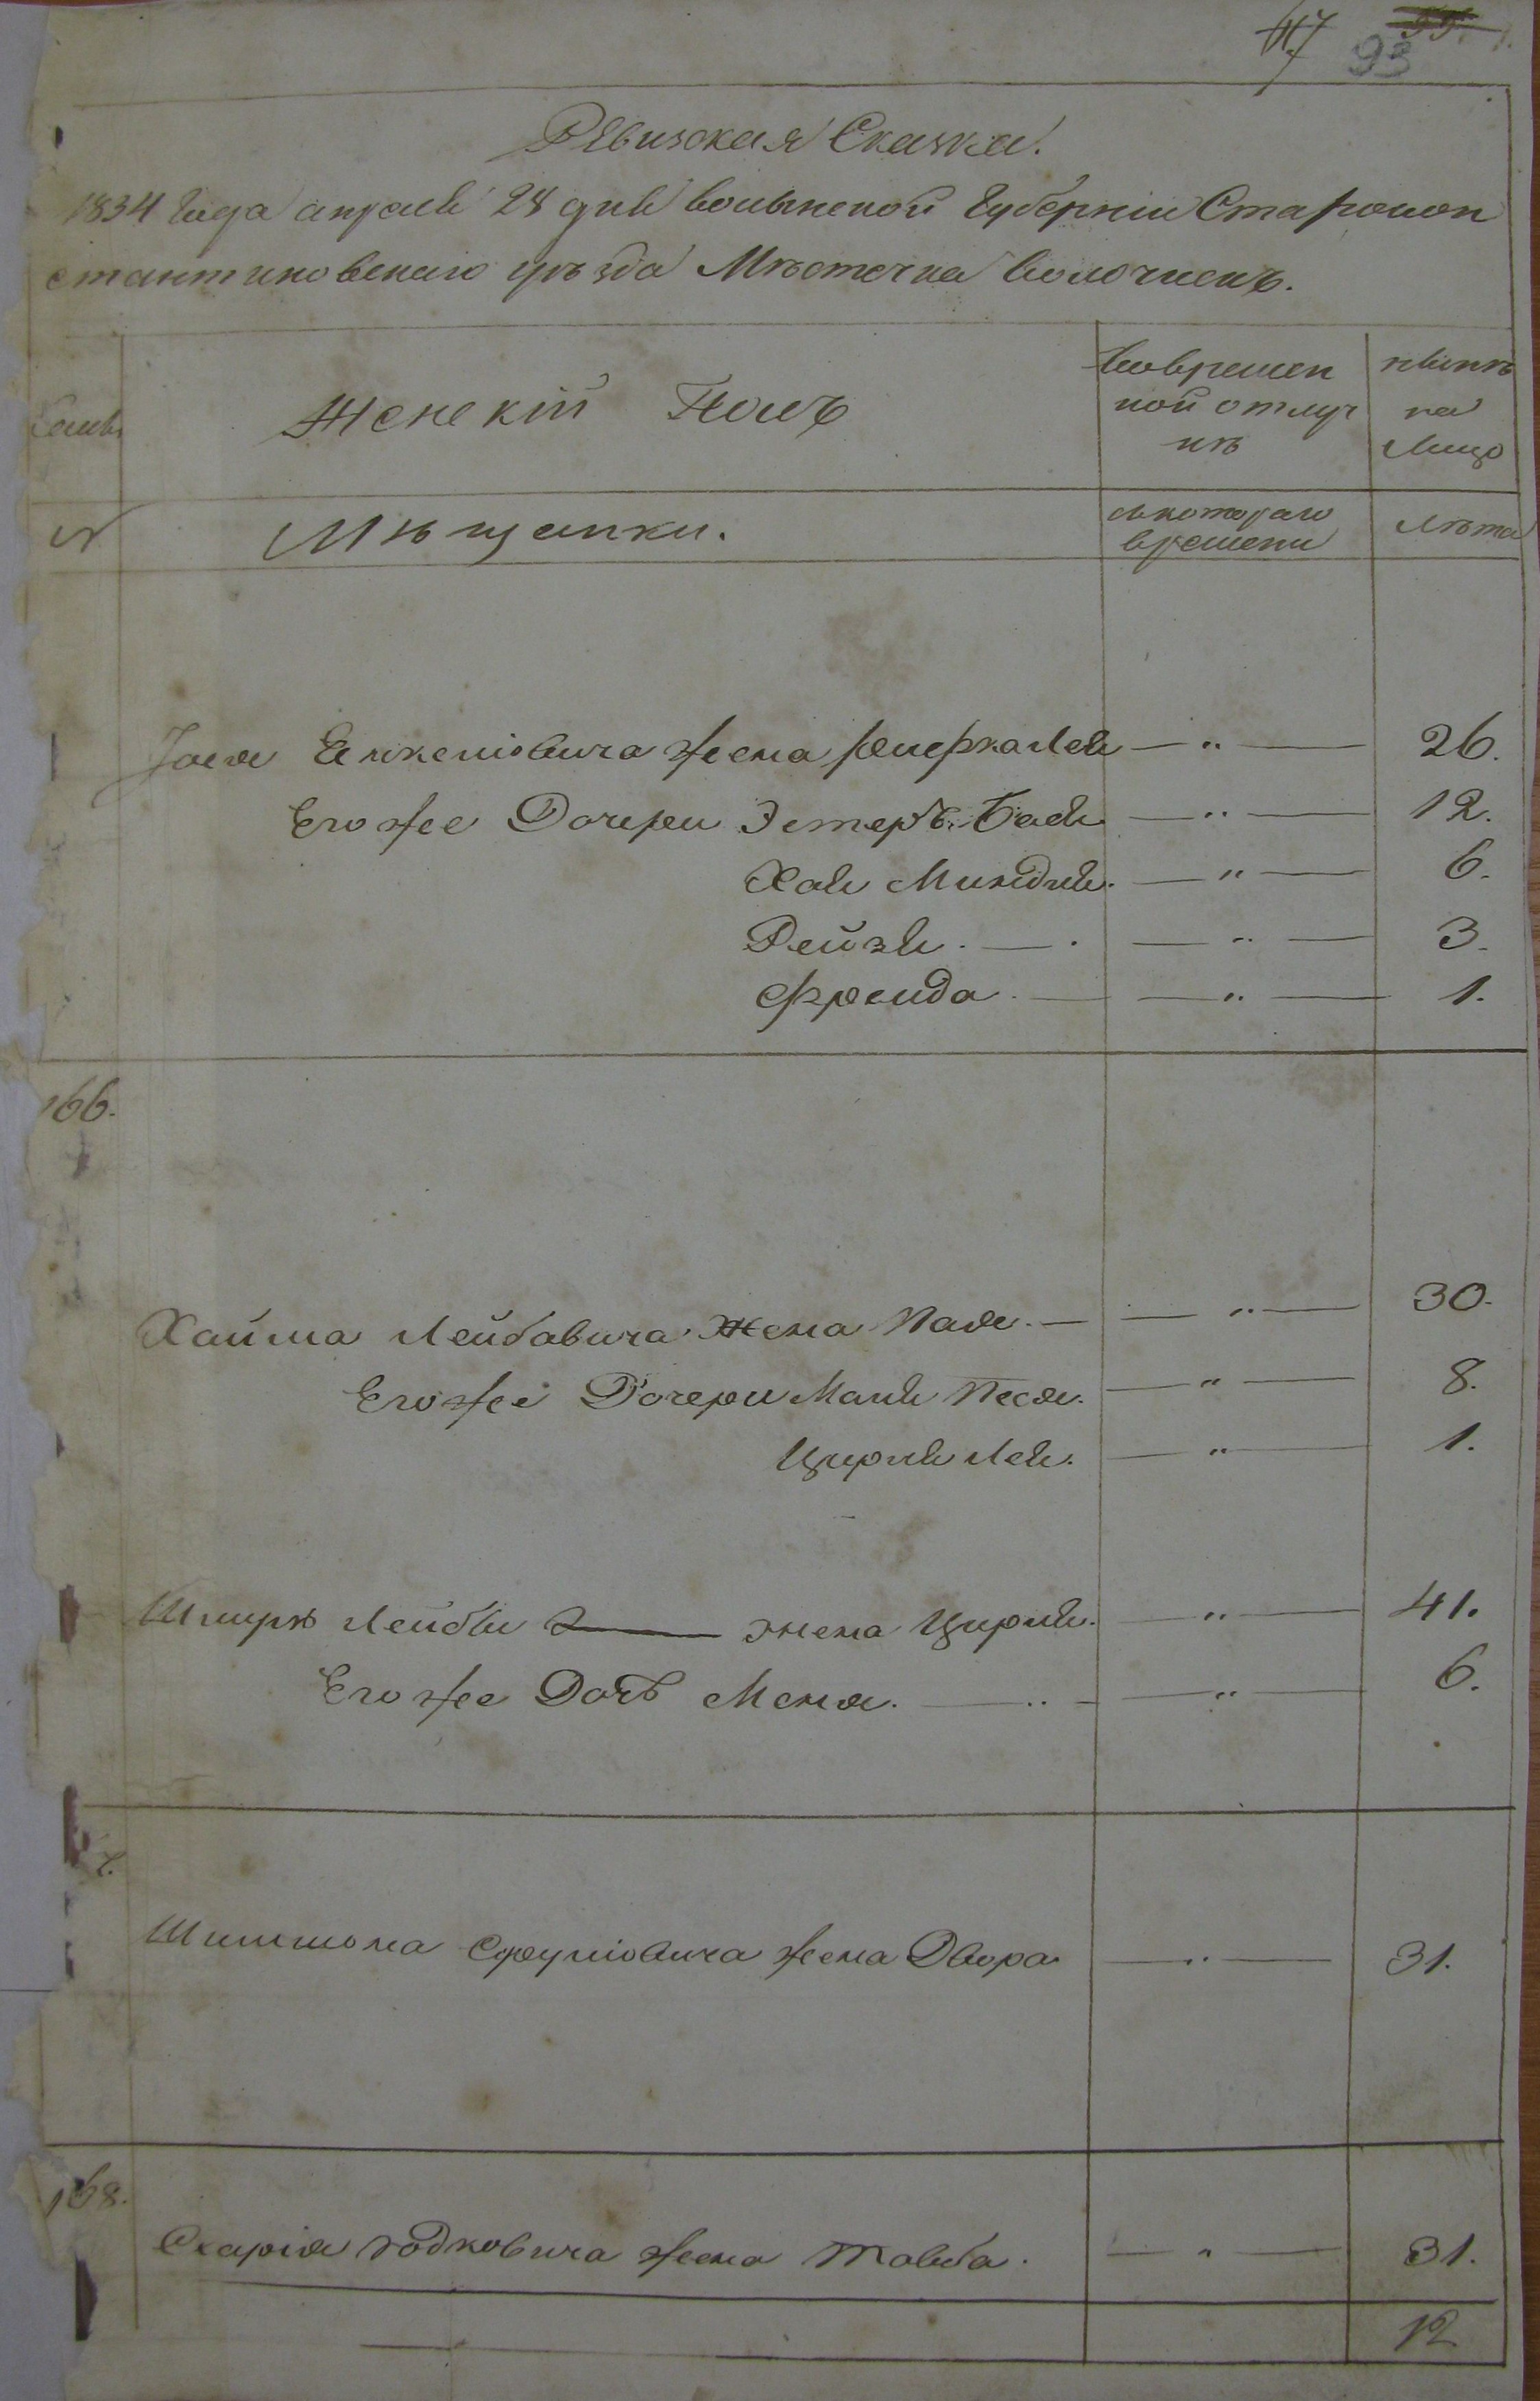 93
Ревизская Сказка.
1834 Года апреля 28 дня волынской Губернiи Старокон
стантиновскаго уѣзда Мѣстечка волочискъ.
Семьи
Женскiй Полъ
во времен
ной отлуч
кѣ
нынѣ
на
лицо
№
Мѣщанки.
съ котораго
времени
Лѣта
Iося жена — " — 26.
Его же Дочери Эстеръ Бася — " — 12.
Хая Миндля. — " — 6.
Рейзя. — . — " — 3.
Фрейда. — — " — 1.
166.
Хаима Лейбовича Жена Пая. — — " — 30.
Его же Дочери Маля Песя. — " — 8.
Цирля Лея. — " — 1.
Шмуля Лейбы жена Цирля. — " — 41.
Его же Дочь Меня. — " — 6.
Шимшона Сруловича жена Двора — " — 31.
168.
Схарiя жена Товба. — " — 31.
12